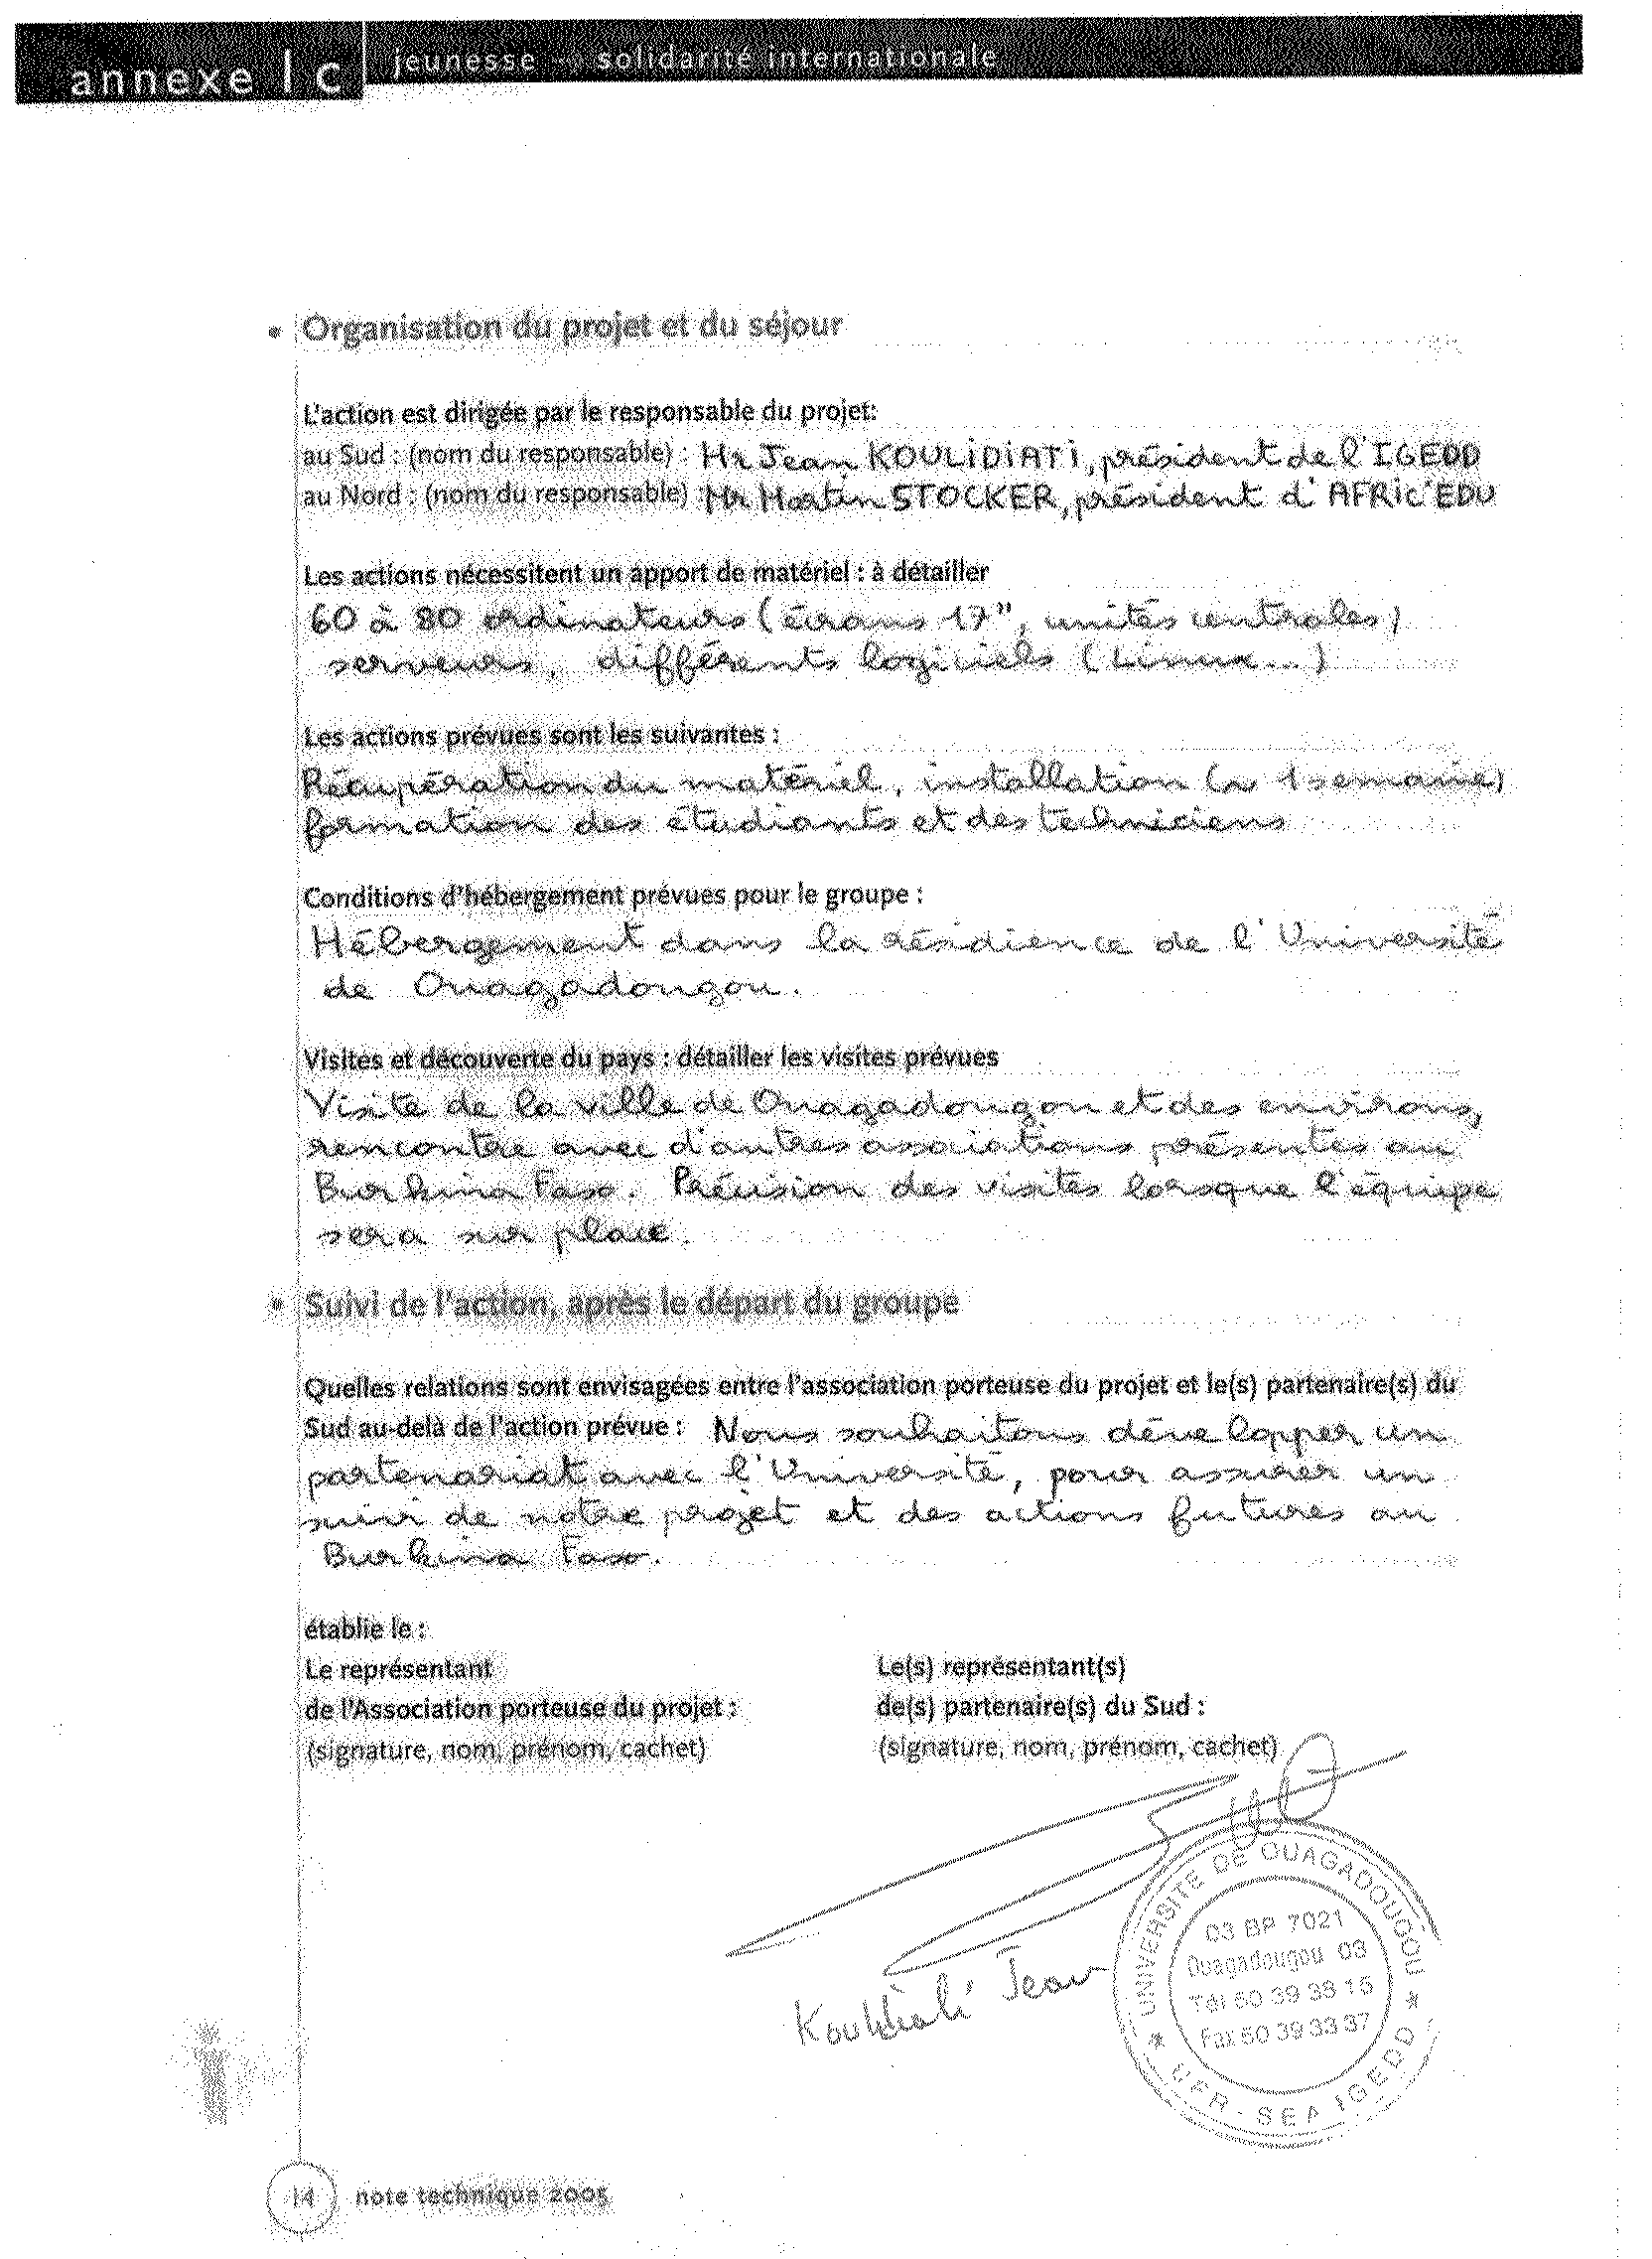 annexe I c
jeunesse — solidarité internationale
• Organisation du projet et du séjour
L'action est dirigée par le responsable du projet:
au Sud : (nom du responsable) : Mr Jean KOULIDIATI, président de l'IGEDD
au Nord : (nom du responsable) : Mr Martin STOCKER, président d'AFRIC'EDU
Les actions nécessitent un apport de matériel : à détailler
60 à 80 ordinateurs (écrans 17", unités centrales)
serveurs, différents logiciels (Linux...)
Les actions prévues sont les suivantes :
Récupération du matériel, installation (~ 1 semaine)
formation des étudiants et des techniciens
Conditions d'hébergement prévues pour le groupe :
Hébergement dans la résidience de l'Université
de Ouagadougou.
Visites et découverte du pays : détailler les visites prévues
Visite de la ville de Ouagadougou et des environs,
rencontre avec d'autres associations présentes au
Burkina Faso. Précision des visites lorsque l'équipe
sera sur place.
• Suivi de l'action, après le départ du groupe
Quelles relations sont envisagées entre l'association porteuse du projet et le(s) partenaire(s) du
Sud au-delà de l'action prévue : Nous souhaitons développer un
partenariat avec l'Université, pour assurer un
suivi de notre projet et des actions futures au
Burkina Faso.
établie le :
Le représentant
de l'Association porteuse du projet :
(signature, nom, prénom, cachet)
Le(s) représentant(s)
de(s) partenaire(s) du Sud :
(signature, nom, prénom, cachet)
Jean
UNIVERSITE DE OUAGADOUGOU
03 BP 7021
Ouagadougou 03
Tél 50 39 38 15
Fax 50 39 33 37
* UFR - SEA IGEDD *
14 note technique 2005